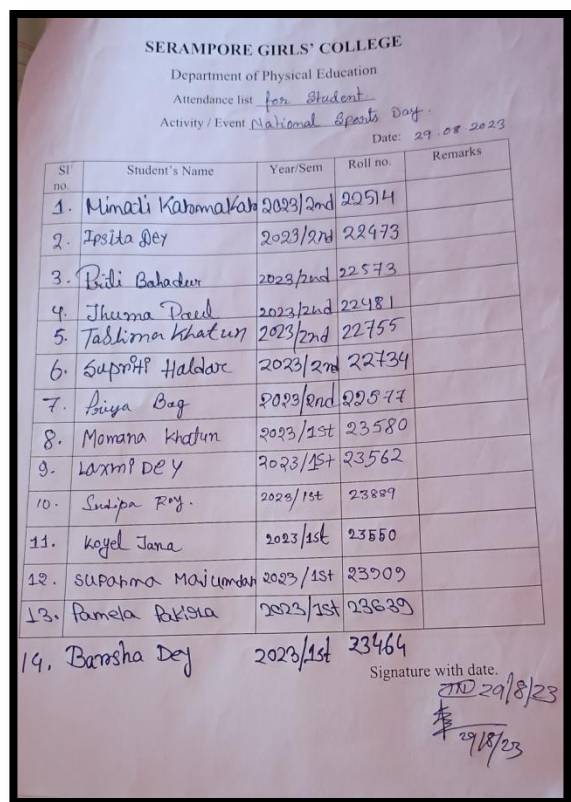 SERAMPORE GIRLS' COLLEGE
Department of Physical Education
Attendance list for Student
Activity / Event National Sports Day.
Date: 29.08 2023
Sl no. Student's Name Year/Sem Roll no. Remarks
1. Minati Karmakar 2023/2nd 22514
2. Ipsita Dey 2023/2nd 22473
3. Bahadur 2023/2nd 22573
4. Jhuma Paul 2023/2nd 22481
5. Taslima Khatun 2023/2nd 22755
6. Supriti Haldar 2023/2nd 22734
7. Priya Bag 2023/2nd 22577
8. Momana Khatun 2023/1st 23580
9. Laxmi DEY 2023/1st 23562
10. Sudipa Roy. 2023/1st 23889
11. Koyel Jana 2023/1st 23550
12. Suparna Majumdar 2023/1st 23909
13. Pamela Pakira 2023/1st 23639
14. Barsha Dey 2023/1st 23464
Signature with date.
29/8/23
29/8/23